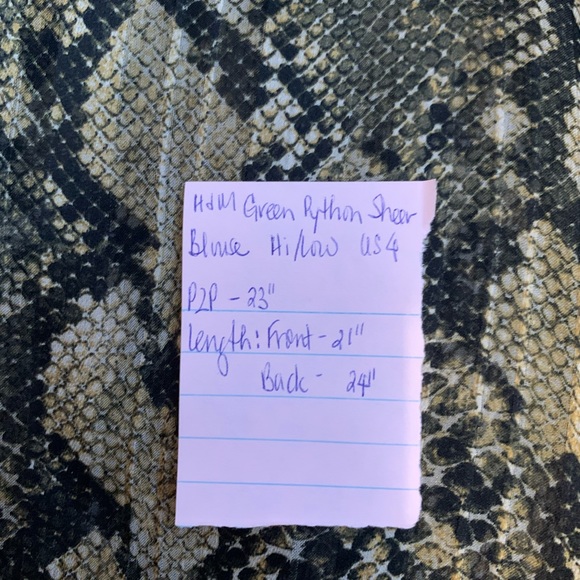 H&M Green Python Sheer
Blouse Hi/Low US4
P2P - 23"
length: Front - 21"
Back - 24"